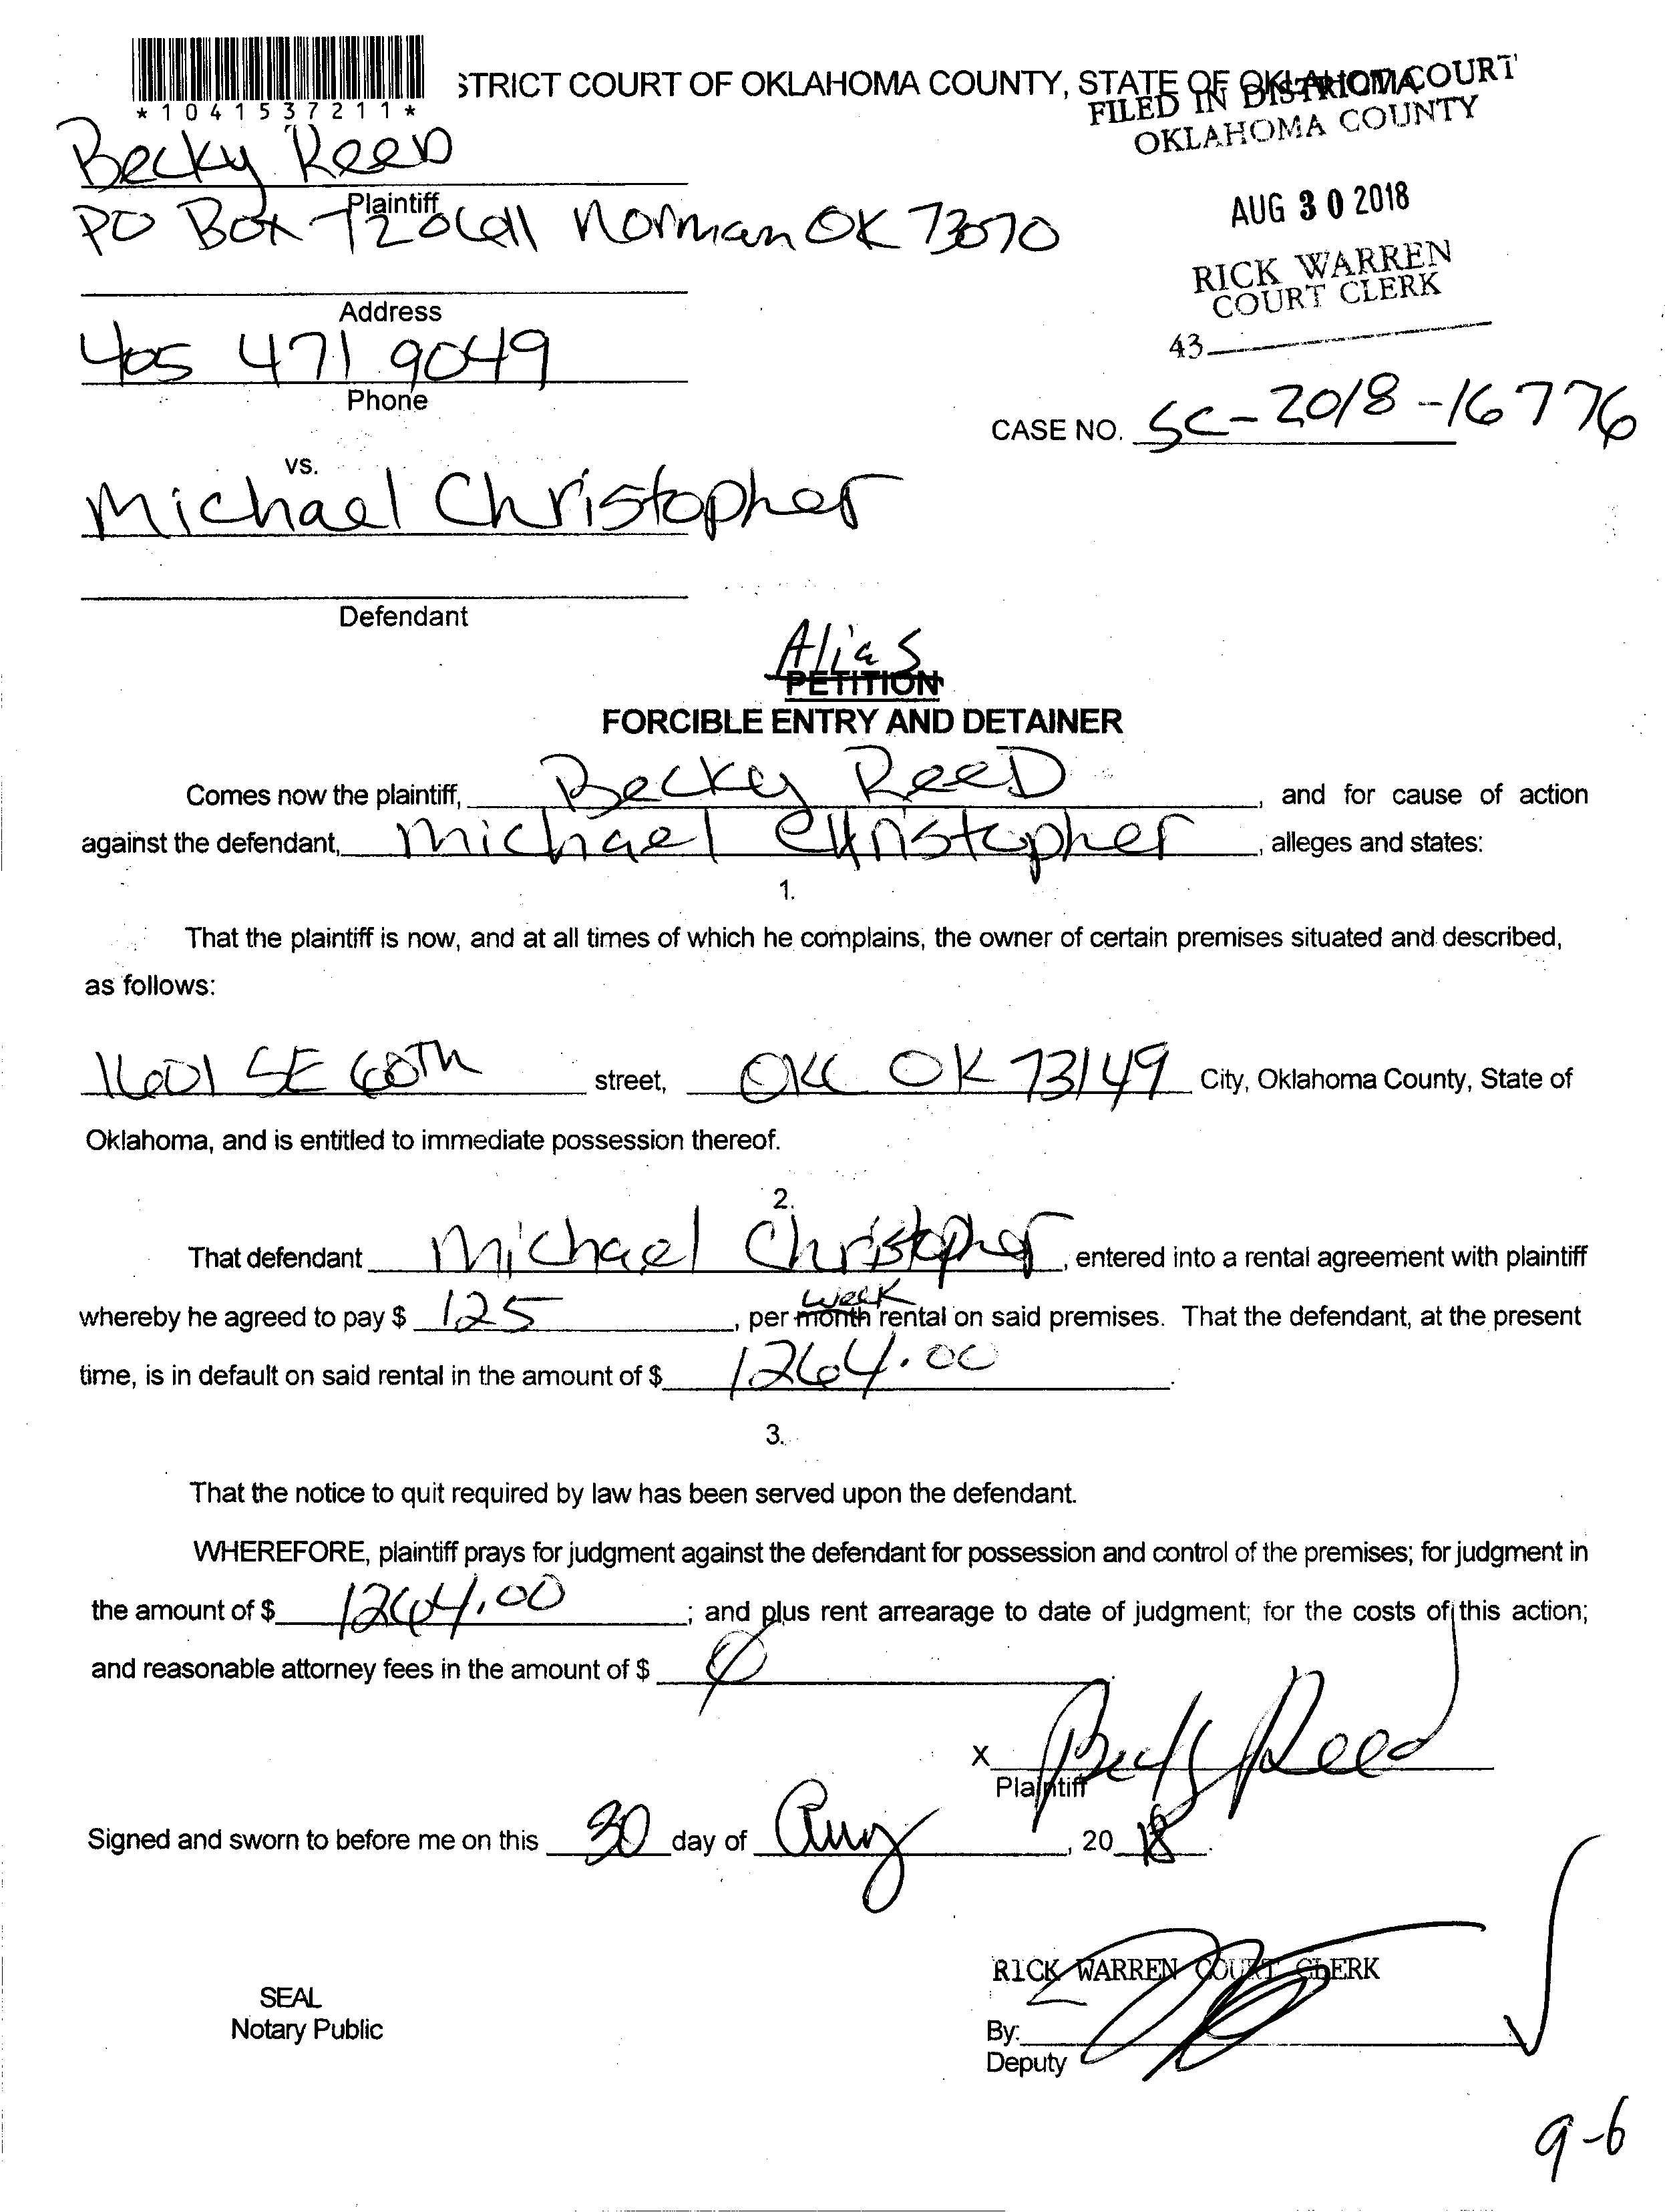 *1041537211*
STRICT COURT OF OKLAHOMA COUNTY, STATE OF OKLAHOMA
FILED IN DISTRICT COURT
OKLAHOMA COUNTY
AUG 30 2018
RICK WARREN
COURT CLERK
43
Becky Reed
Plaintiff
PO Box Norman OK 73070
Address
405 471 9049
Phone
CASE NO. SC-2018-16776
vs.
Michael Christopher
Defendant
Alias
PETITION
FORCIBLE ENTRY AND DETAINER
Comes now the plaintiff, Becky Reed, and for cause of action
against the defendant, Michael Christopher, alleges and states:
1.
That the plaintiff is now, and at all times of which he complains, the owner of certain premises situated and described,
as follows:
1601 SE 60TH street, OKC OK 73149 City, Oklahoma County, State of
Oklahoma, and is entitled to immediate possession thereof.
2.
That defendant Michael Christopher, entered into a rental agreement with plaintiff
week
whereby he agreed to pay $ 125, per month rental on said premises. That the defendant, at the present
time, is in default on said rental in the amount of $ 1264.00.
3.
That the notice to quit required by law has been served upon the defendant.
WHEREFORE, plaintiff prays for judgment against the defendant for possession and control of the premises; for judgment in
the amount of $ 1264.00; and plus rent arrearage to date of judgment; for the costs of this action;
and reasonable attorney fees in the amount of $ 0
X Becky Reed
Plaintiff
Signed and sworn to before me on this 30 day of Aug, 2018.
RICK WARREN COURT CLERK
SEAL
Notary Public
By:
Deputy
9-6